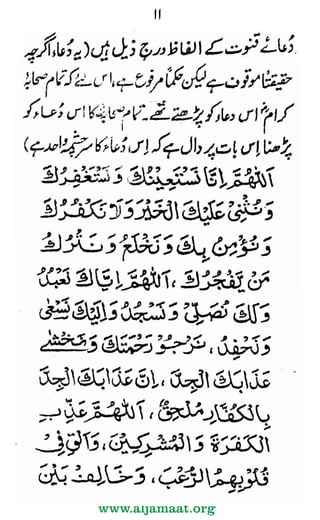 ۱۱
دُعائے قنوت کے الفاظ درج ذیل ہیں (یہ دُعاء اگرچہ
حقیقتًا موقوف ہے لیکن حکمًا مرفوع ہے، اس لئے کہ تمام صحابۂ
کرامؓ اس دعاء کو پڑھتے تھے۔ تمام صحابہؓ کا اس دُعاء کو
پڑھنا اِس بات پر دال ہے کہ اِس دُعاء کا سرچشمہ واحد ہے)
اَللّٰهُمَّ اِنَّا نَسْتَعِيْنُكَ وَنَسْتَغْفِرُكَ
وَنُثْنِيْ عَلَيْكَ الْخَيْرَ وَلَا نَكْفُرُكَ
وَنُؤْمِنُ بِكَ وَنَخْلَعُ وَنَتْرُكُ
مَنْ يَّفْجُرُكَ، اَللّٰهُمَّ اِيَّاكَ نَعْبُدُ
وَلَكَ نُصَلِّيْ وَنَسْجُدُ وَاِلَيْكَ نَسْعٰى
وَنَحْفِدُ، نَرْجُوْ رَحْمَتَكَ وَنَخْشٰى
عَذَابَكَ الْجِدَّ، اِنَّ عَذَابَكَ الْجِدَّ
بِالْكُفَّارِ مُلْحِقٌ، اَللّٰهُمَّ عَذِّبِ
الْكَفَرَةَ وَالْمُشْرِكِيْنَ، وَاَلْقِ فِيْ
قُلُوْبِهِمُ الرُّعْبَ، وَخَالِفْ بَيْنَ
www.aljamaat.org